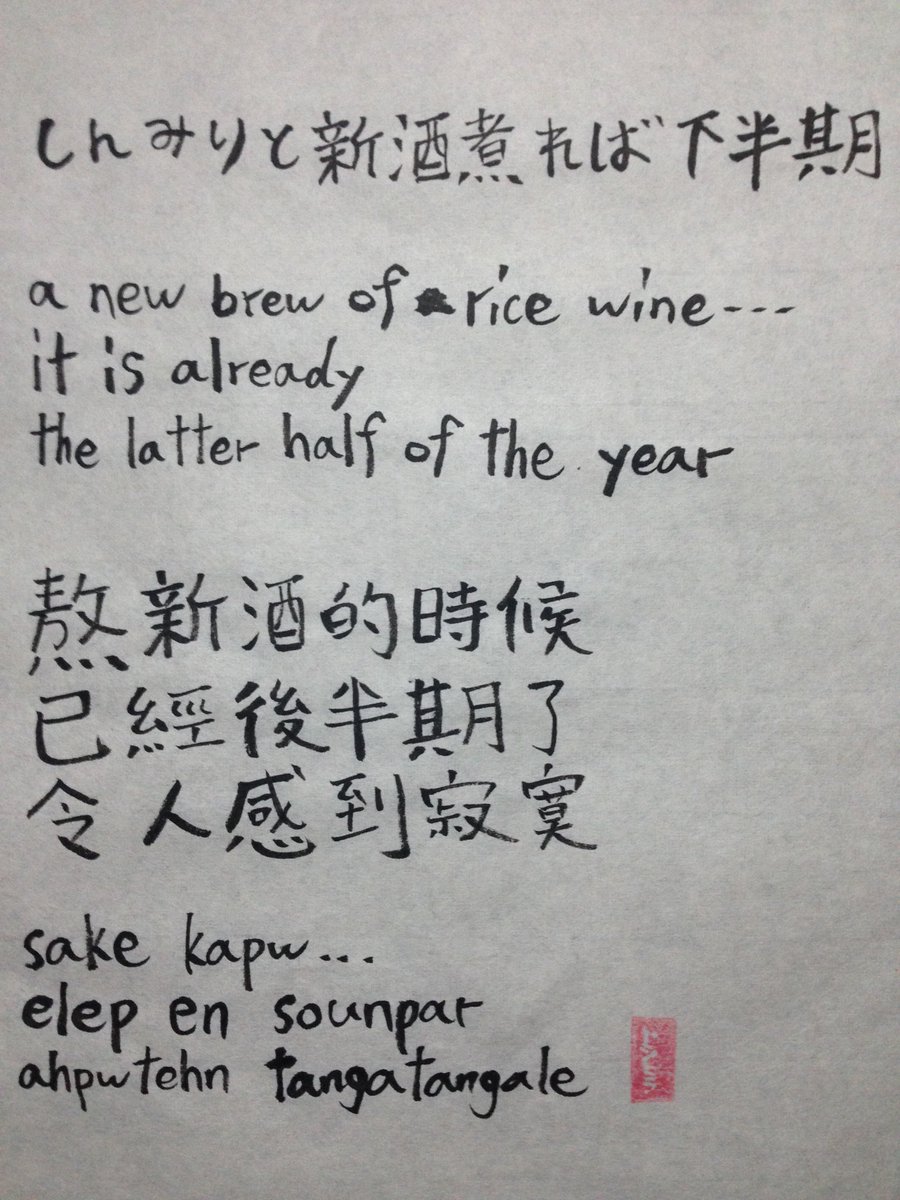 しんみりと新酒煮れば下半期
a new brew of rice wine---
it is already
the latter half of the year
熬新酒的時候
已經後半期了
令人感到寂寞
sake kapw...
elep en sounpar
ahpwtehn tangatangale